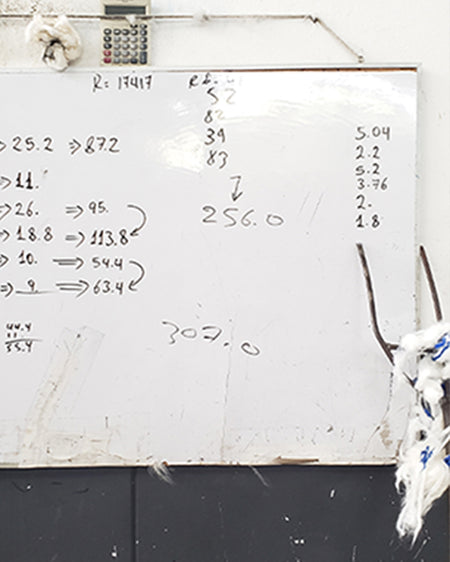 R= 17417
52
82
39
83
256.0
⇒ 25.2 ⇒ 87.2
⇒ 11.
⇒ 26. ⇒ 95.
⇒ 18.8 ⇒ 113.8
⇒ 10. ⇒ 54.4
⇒ 9. ⇒ 63.4
44.4
35.4
307.0
5.04
2.2
5.2
3.76
2.
1.8